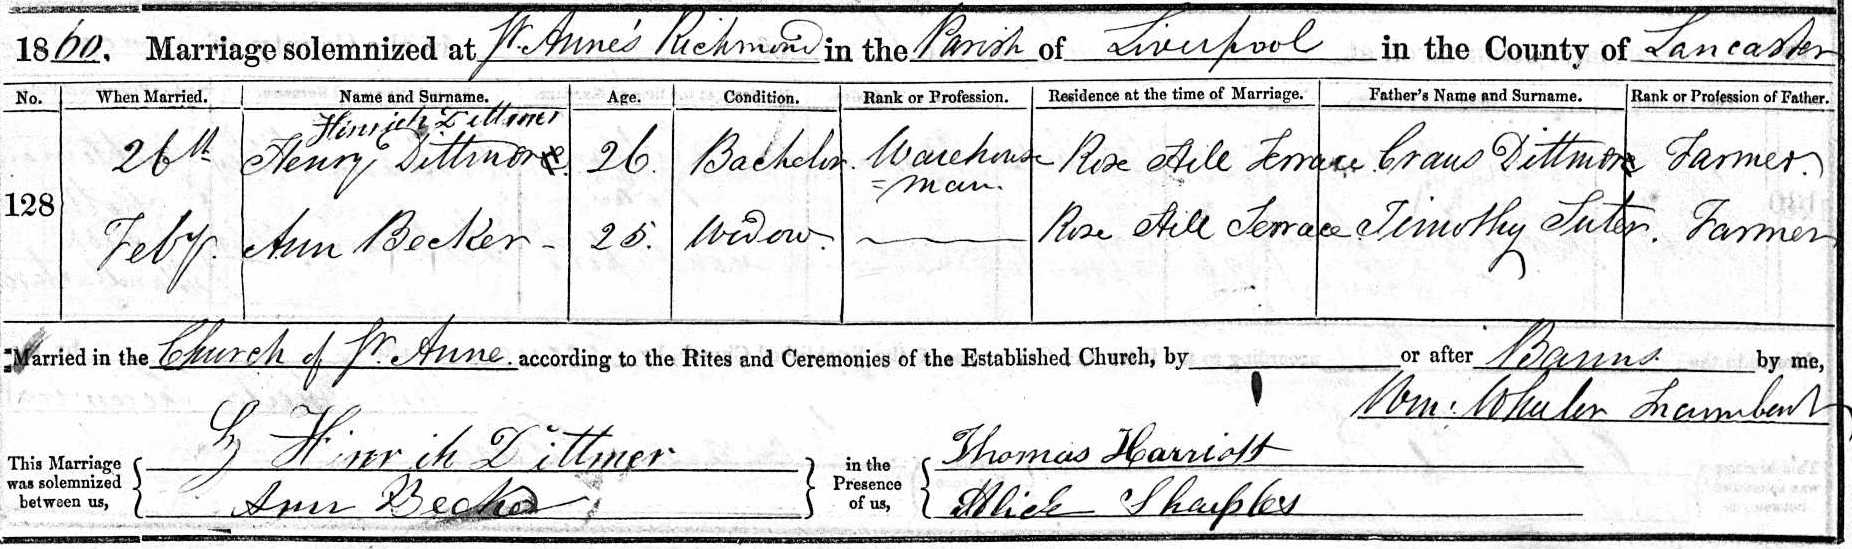 1860. Marriage solemnized at St. Anne's Richmond in the Parish of Liverpool in the County of Lancaster
No. When Married. Name and Surname. Age. Condition. Rank or Profession. Residence at the time of Marriage. Father's Name and Surname. Rank or Profession of Father.
Hinrich Dittmer
26th Henry Dittmore 26. Bachelor. Warehouse Rose Hill Terrace Craus Dittmore Farmer.
=man.
128
Feby. Ann Becker - 25. Widow. Rose Hill Terrace Timothy Suter. Farmer
Married in the Church of St. Anne. according to the Rites and Ceremonies of the Established Church, by or after Banns. by me,
Wm. Wheeler Incumbent
This Marriage was solemnized between us, { Hinrich Dittmer } in the Presence of us, { Thomas Harriott
Ann Becker Alice Sharples